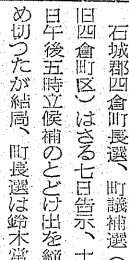 石城郡四倉町長選、町議補選（
旧四倉町区）はさる七日告示、十
日午後五時立候補のとどけ出を締
め切つたが結局、町長選は鈴木